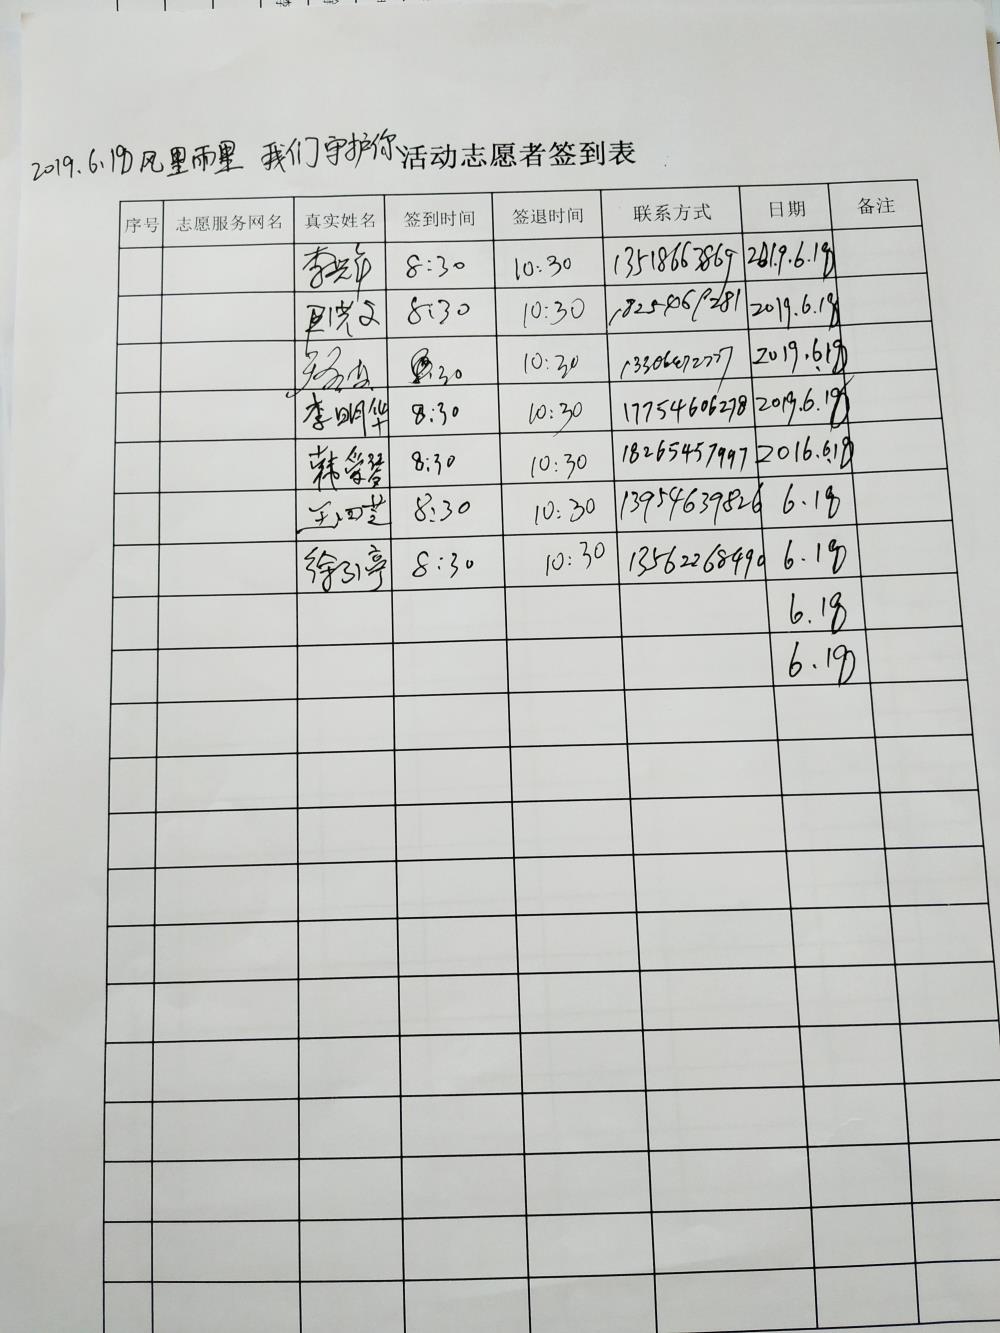 2019.6.19 风里雨里 我们守护你 活动志愿者签到表
序号 志愿服务网名 真实姓名 签到时间 签退时间 联系方式 日期 备注
8:30 10:30 13518663869 2019.6.19
8:30 10:30 2019.6.19
8:30 10:30 2019.6.19
李明华 8:30 10:30 17754606278 2019.6.19
韩爱琴 8:30 10:30 18265457997 2016.6.19
8:30 10:30 13954639826 6.19
徐引亭 8:30 10:30 13562268490 6.19
6.19
6.19